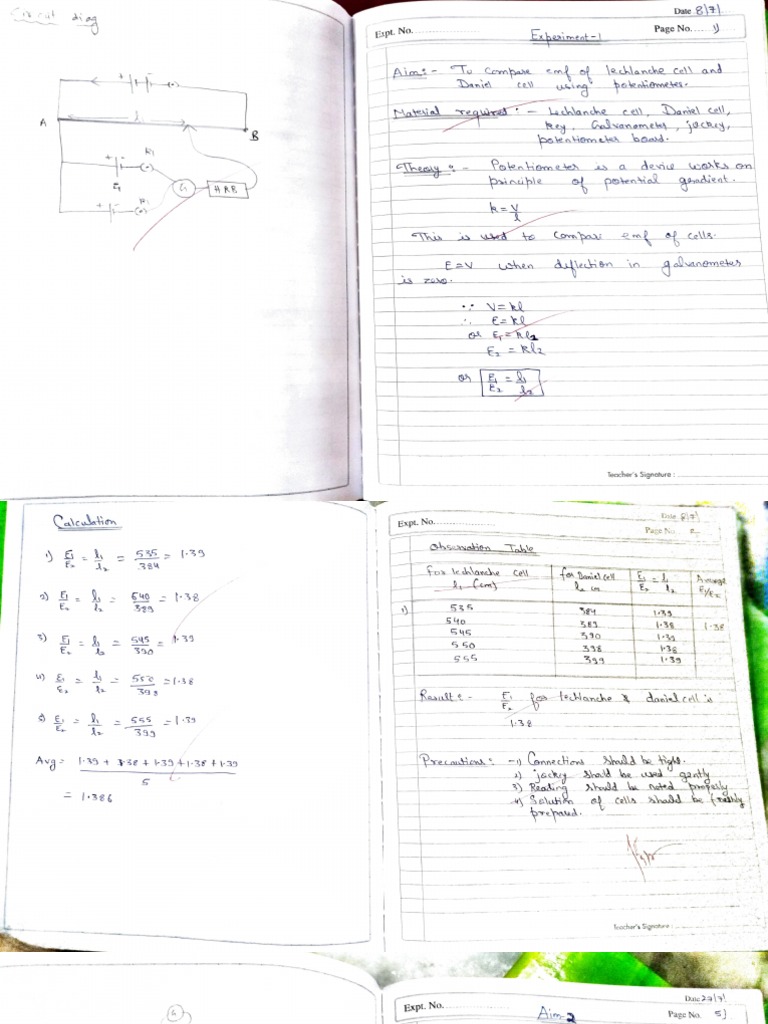 Circuit diag
+ -
A
l1
B
+ -
K1
E1
G
HRB
+ -
K1
Date 8/7/
Expt. No.
Page No. 1)
Experiment-1
Aim:- To compare emf of lechlanche cell and
Daniel cell using potentiometer.
Material required:- Lechlanche cell, Daniel cell,
key, Galvanometer, jockey,
potentiometer board.
Theory:- Potentiometer is a device works on
principle of potential gradient.
k = V/l
This is used to compare emf of cells.
E=V when deflection in galvanometer
is zero.
∵ V=kl
∴ E=kl
or E1=kl1
E2 = kl2
or E1/E2 = l1/l2
Teacher's Signature :
Calculation
1) E1/E2 = l1/l2 = 535/384 = 1.39
2) E1/E2 = l1/l2 = 540/389 = 1.38
3) E1/E2 = l1/l2 = 545/390 = 1.39
4) E1/E2 = l1/l2 = 550/398 = 1.38
5) E1/E2 = l1/l2 = 555/399 = 1.39
Avg = 1.39 + 1.38 + 1.39 + 1.38 + 1.39 / 5
= 1.386
Date 8/7/
Expt. No.
Page No. 2
Observation Table
for lechlanche cell l1 (cm) for Daniel cell l2 cm E1/E2 = l1/l2 Average E1/E2
1) 535 384 1.39
540 389 1.38 1.38
545 390 1.39
550 398 1.38
555 399 1.39
Result:- E1/E2 for lechlanche & daniel cell is
1.38
Precautions:- 1) Connections should be tight.
2) jockey should be used gently
3) Reading should be noted properly
4) Solution of cells should be freshly
prepared.
Teacher's Signature :
G
Date 27/7/
Expt. No.
Page No. 5)
Aim-2